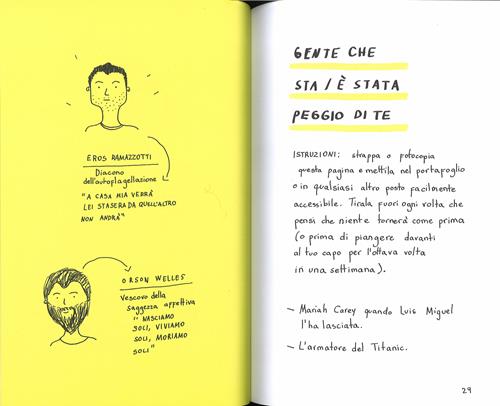 EROS RAMAZZOTTI
Diacono
dell'autoplagellazione
"A CASA MIA VEDRÀ
LEI STASERA DA QUELL'ALTRO
NON ANDRÀ"
ORSON WELLES
Vescovo della
saggezza affettiva
"NASCIAMO
SOLI, VIVIAMO
SOLI, MORIAMO
SOLI"
GENTE CHE
STA / È STATA
PEGGIO DI TE
ISTRUZIONI: strappa o fotocopia
questa pagina e mettila nel portafoglio
o in qualsiasi altro posto facilmente
accessibile. Tirala fuori ogni volta che
pensi che niente tornerà come prima
(o prima di piangere davanti
al tuo capo per l'ottava volta
in una settimana).
– Mariah Carey quando Luis Miguel
l'ha lasciata.
– L'armatore del Titanic.
29